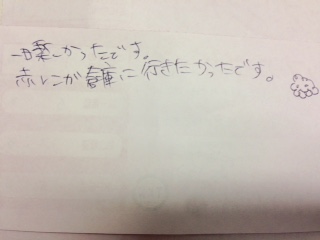 一番楽しかったです。
赤レンガ倉庫に行きたかったです。